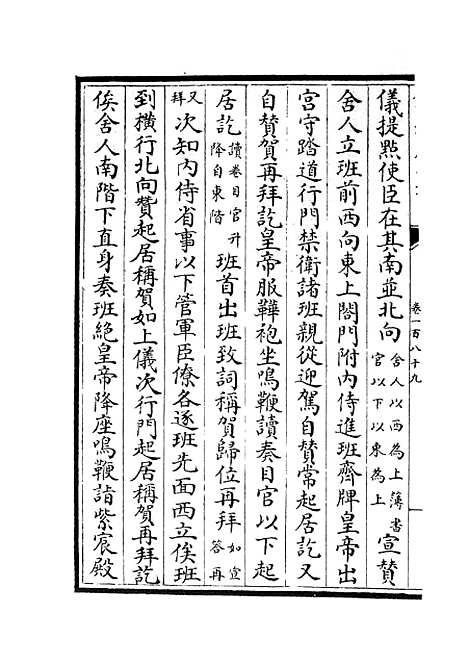 儀提㸃使臣在其南並北向舍人以西為上簿書官以下以東為上宣贊
舍人立班前西向東上閤門附内侍進班齊牌皇帝出
宫守踏道行門禁衛諸班親從迎駕自贊常起居訖又
自贊賀再拜訖皇帝服鞾袍坐鳴鞭讀奏目官以下起
居訖讀奏目官升降自東階班首出班致詞稱賀歸位再拜如宣答再
又拜次知内侍省事以下管軍臣僚各逐班先面西立俟班
到横行北向贊起居稱賀如上儀次行門起居稱賀再拜訖
俟舍人南階下直身奏班絶皇帝降座鳴鞭詣紫宸殿
卷一百八十九